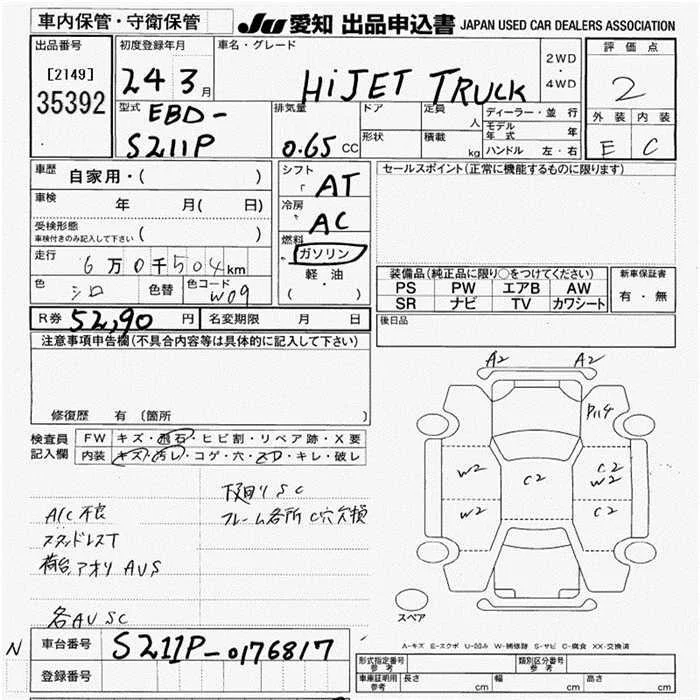 車内保管・守衛保管
JU 愛知 出品申込書 JAPAN USED CAR DEALERS ASSOCIATION
出品番号
[2149]
35392
初度登録年月
24 3月
車名・グレード
HiJET TRUCK
2WD
・
4WD
評価点
2
型式
EBD-
S211P
排気量
0.65 CC
ドア
定員
人
形状
積載
kg
ディーラー・並行
モデル年式 年
ハンドル 左・右
外装 内装
E C
車歴
自家用・( )
車検
年 月( 日)
受検形態
車検付きのみ記入して下さい ( )
走行
6万0千504km
色
シロ
色替
色コード
W09
シフト
AT
冷房
AC
燃料
ガソリン
軽油
( ・ )
セールスポイント(正常に機能するものに限ります)
装備品(純正品に限り○をつけてください)
PS PW エアB AW
SR ナビ TV カワシート
新車保証書
有・無
R券 52,90 円 名変期限 月 日
後日品
注意事項申告欄(不具合内容等は具体的に記入して下さい)
修復歴 有(箇所 )
検査員
記入欄
FW キズ・飛石・ヒビ割・リペア跡・X要
内装 キズ・汚レ・コゲ・穴・・キレ・破レ
下回りSC
A/C不良
フレーム各所C穴欠損
スタッドレスT
荷台、アオリAUS
各AUSC
A2 A2
P114
W2 C2 C2
W2
W2 C2
スペア
A-キズ E-エクボ U-凹み W-補修跡 S-サビ C-腐食 XX-交換済
N 車台番号 S211P-0176817
登録番号
形式指定番号 参考
類別区分番号 参考
車庫証明用 参考 長さ cm 幅 cm 高さ cm